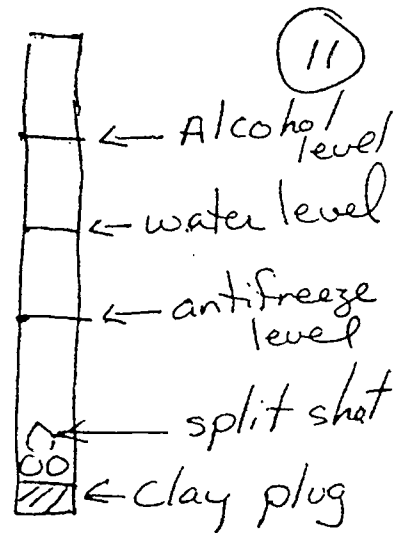 11
Alcohol
level
water level
antifreeze
level
split shot
clay plug